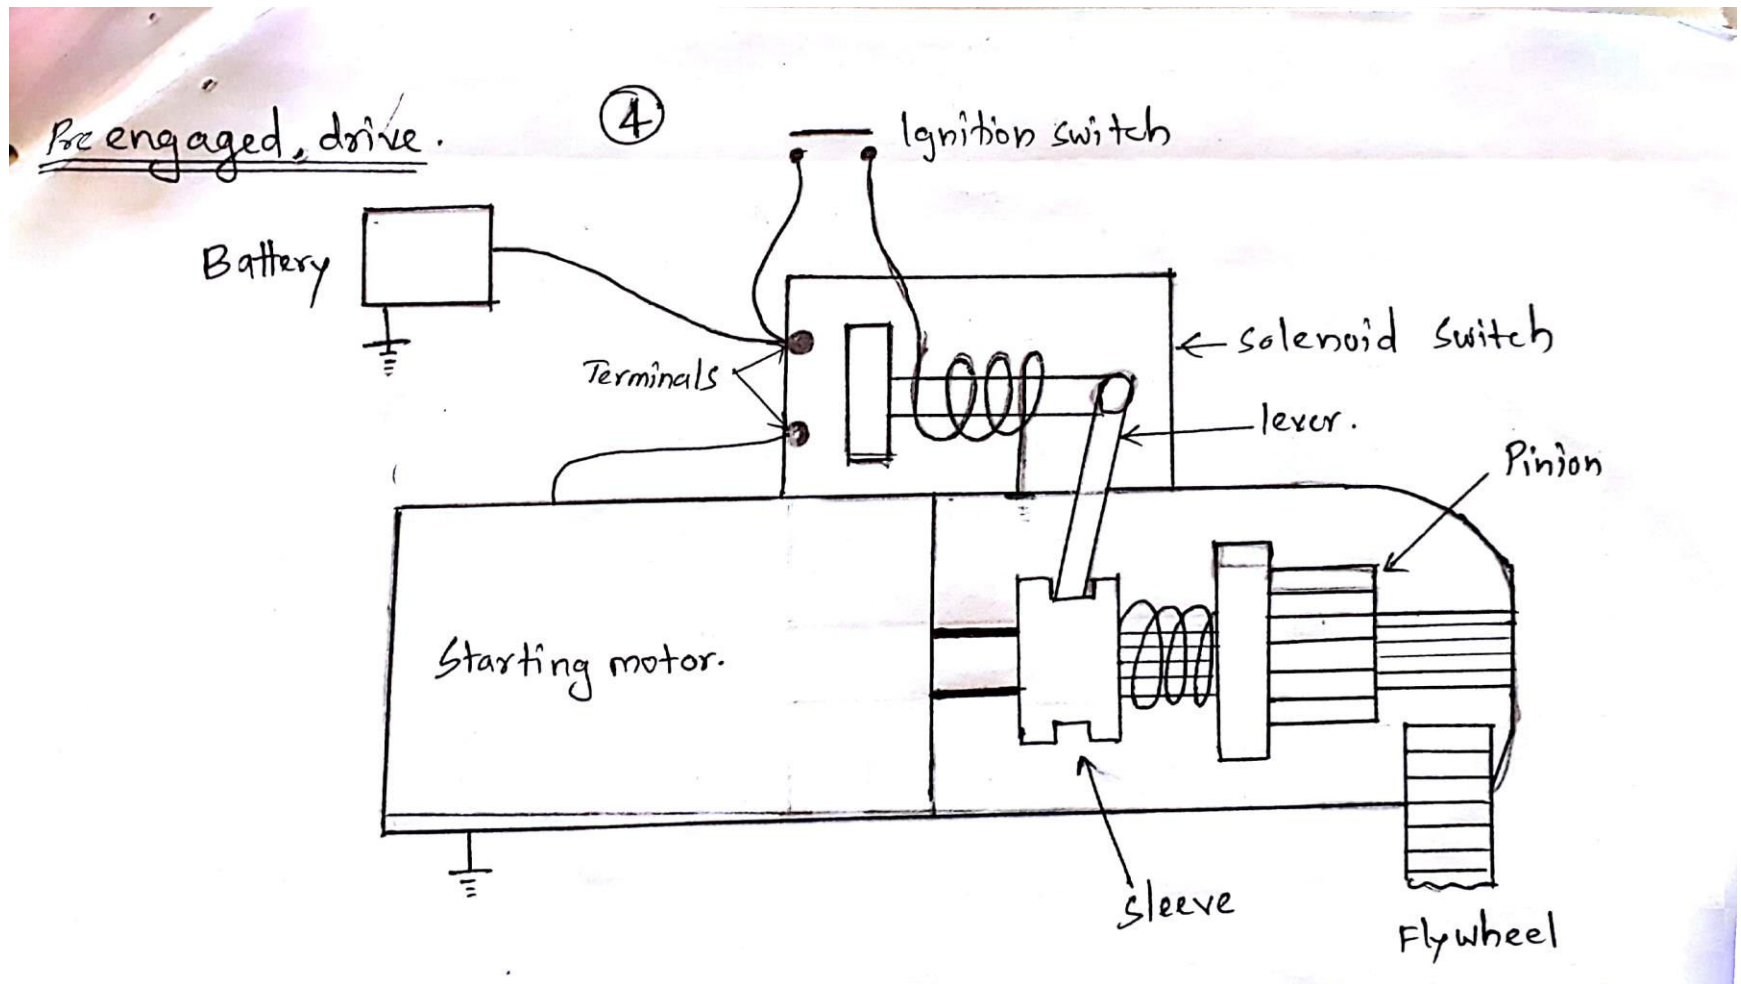 ④
Pre engaged, drive.
Ignition switch
Battery
Terminals
Solenoid switch
lever.
Pinion
Starting motor.
Sleeve
Flywheel